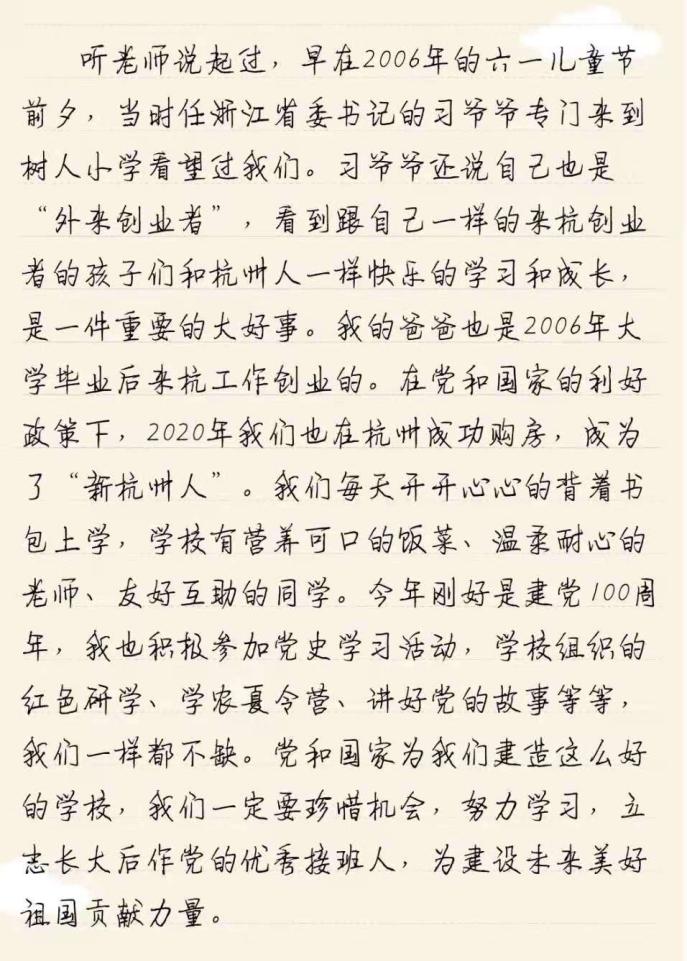 听老师说起过，早在2006年的六一儿童节
前夕，当时任浙江省委书记的习爷爷专门来到
树人小学看望过我们。习爷爷还说自己也是
“外来创业者”，看到跟自己一样的来杭创业
者的孩子们和杭州人一样快乐的学习和成长，
是一件重要的大好事。我的爸爸也是2006年大
学毕业后来杭工作创业的。在党和国家的利好
政策下，2020年我们也在杭州成功购房，成为
了“新杭州人”。我们每天开开心心的背着书
包上学，学校有营养可口的饭菜、温柔耐心的
老师、友好互助的同学。今年刚好是建党100周
年，我也积极参加党史学习活动，学校组织的
红色研学、学农夏令营、讲好党的故事等等，
我们一样都不缺。党和国家为我们建造这么好
的学校，我们一定要珍惜机会，努力学习，立
志长大后作党的优秀接班人，为建设未来美好
祖国贡献力量。